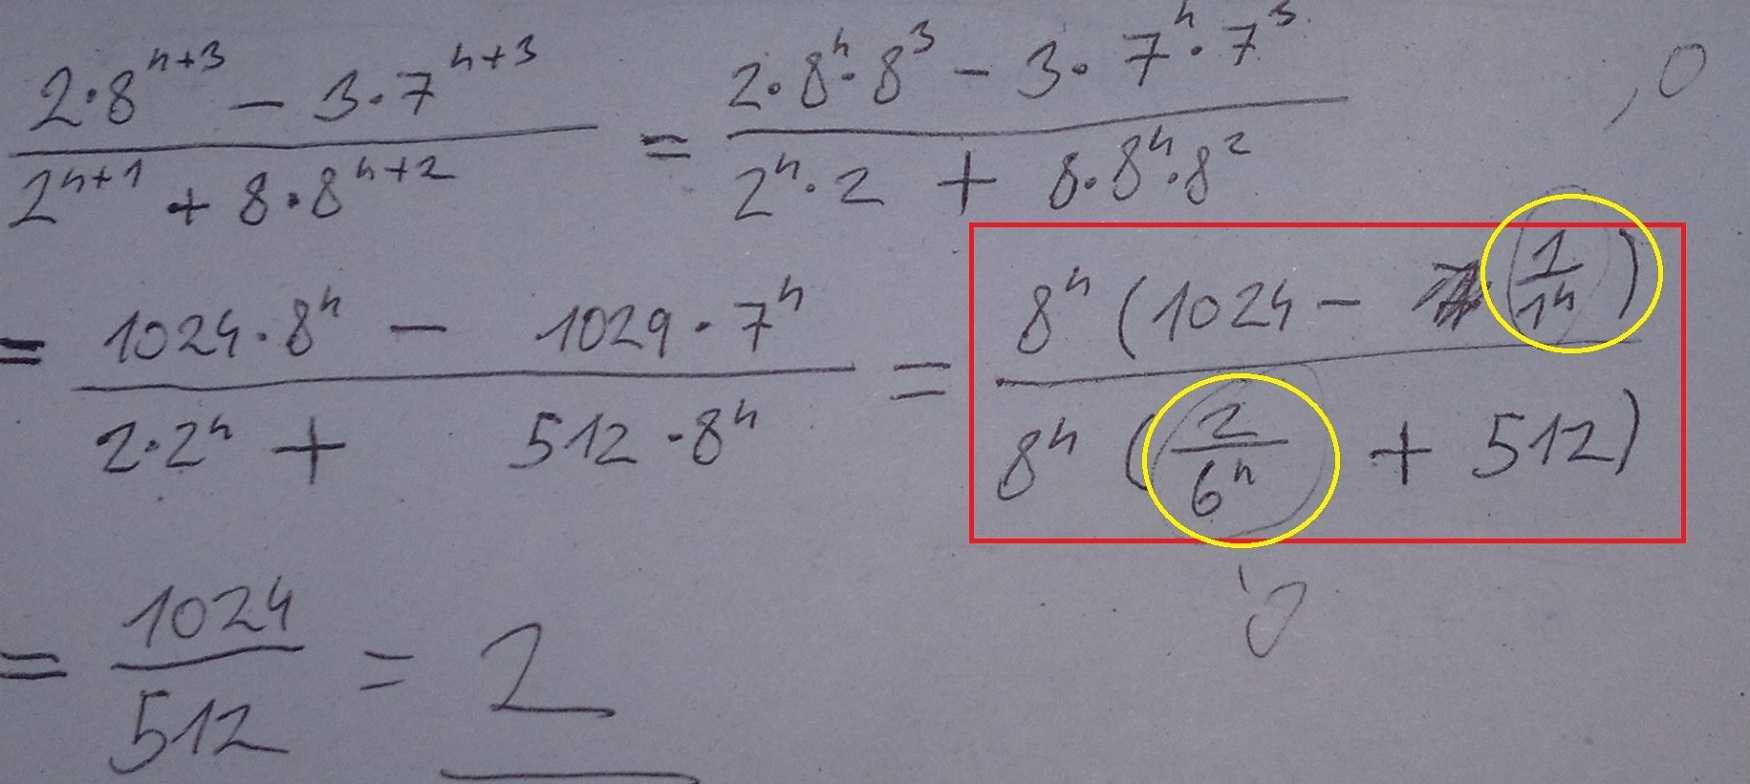 2·8^{n+3} - 3·7^{n+3} / 2^{n+1} + 8·8^{n+2} = 2·8^n·8^3 - 3·7^n·7^3 / 2^n·2 + 8·8^n·8^2
= 1024·8^n - 1029·7^n / 2·2^n + 512·8^n = 8^n (1024 - (1/1^n)) / 8^n (2/6^n + 512)
= 1024 / 512 = 2